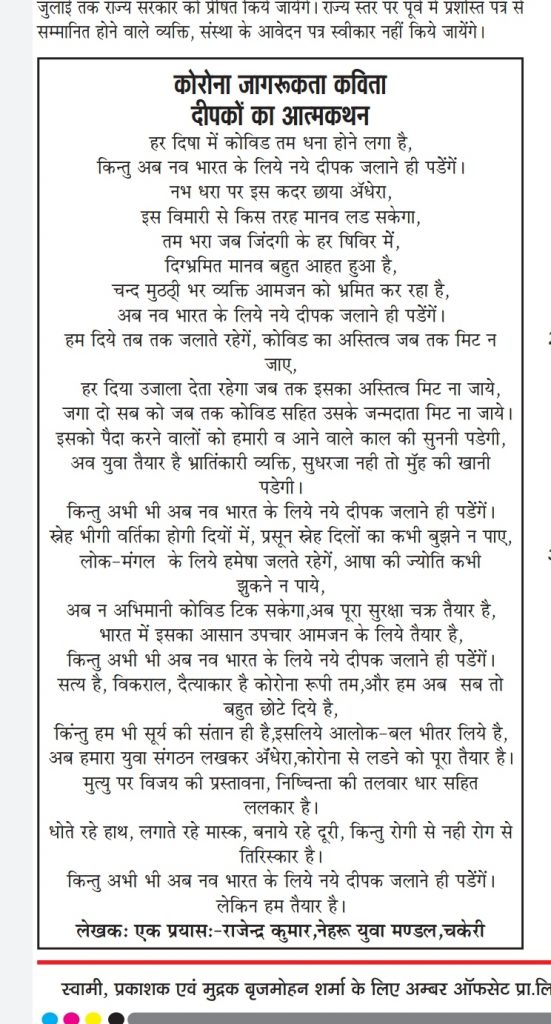 जुलाई तक राज्य सरकार को प्रेषित किये जायेंगे। राज्य स्तर पर पूर्व में प्रशस्ति पत्र से
सम्मानित होने वाले व्यक्ति, संस्था के आवेदन पत्र स्वीकार नहीं किये जायेंगे।
कोरोना जागरूकता कविता
दीपकों का आत्मकथन
हर दिषा में कोविड तम धना होने लगा है,
किन्तु अब नव भारत के लिये नये दीपक जलाने ही पडेंगें।
नभ धरा पर इस कदर छाया अॅधेरा,
इस विमारी से किस तरह मानव लड सकेगा,
तम भरा जब जिंदगी के हर षिविर में,
दिग्भ्रमित मानव बहुत आहत हुआ है,
चन्द मुठठ्ी भर व्यक्ति आमजन को भ्रमित कर रहा है,
अब नव भारत के लिये नये दीपक जलाने ही पडेंगें।
हम दिये तब तक जलाते रहेगें, कोविड का अस्तित्व जब तक मिट न
जाए,
हर दिया उजाला देता रहेगा जब तक इसका अस्तित्व मिट ना जाये,
जगा दो सब को जब तक कोविड सहित उसके जन्मदाता मिट ना जाये।
इसको पैदा करने वालों को हमारी व आने वाले काल की सुननी पडेगी,
अव युवा तैयार है भ्रातिंकारी व्यक्ति, सुधरजा नही तो मुॅह की खानी
पडेगी।
किन्तु अभी भी अब नव भारत के लिये नये दीपक जलाने ही पडेंगें।
स्नेह भीगी वर्तिका होगी दियों में, प्रसून स्नेह दिलों का कभी बुझने न पाए,
लोक-मंगल के लिये हमेषा जलते रहेगें, आषा की ज्योति कभी
झुकने न पाये,
अब न अभिमानी कोविड टिक सकेगा,अब पूरा सुरक्षा चक्र तैयार है,
भारत में इसका आसान उपचार आमजन के लिये तैयार है,
किन्तु अभी भी अब नव भारत के लिये नये दीपक जलाने ही पडेंगें।
सत्य है, विकराल, दैत्याकार है कोरोना रूपी तम,और हम अब सब तो
बहुत छोटे दिये है,
किंन्तु हम भी सूर्य की संतान ही है,इसलिये आलोक-बल भीतर लिये है,
अब हमारा युवा संगठन लखकर अॅंधेरा,कोरोना से लडने को पूरा तैयार है।
मुत्यु पर विजय की प्रस्तावना, निष्चिन्ता की तलवार धार सहित
ललकार है।
धोते रहे हाथ, लगाते रहे मास्क, बनाये रहे दूरी, किन्तु रोगी से नही रोग से
तिरिस्कार है।
किन्तु अभी भी अब नव भारत के लिये नये दीपक जलाने ही पडेंगें।
लेकिन हम तैयार है।
लेखकः एक प्रयासः-राजेन्द्र कुमार,नेहरू युवा मण्डल,चकेरी
स्वामी, प्रकाशक एवं मुद्रक बृजमोहन शर्मा के लिए अम्बर ऑफसेट प्रा.लि